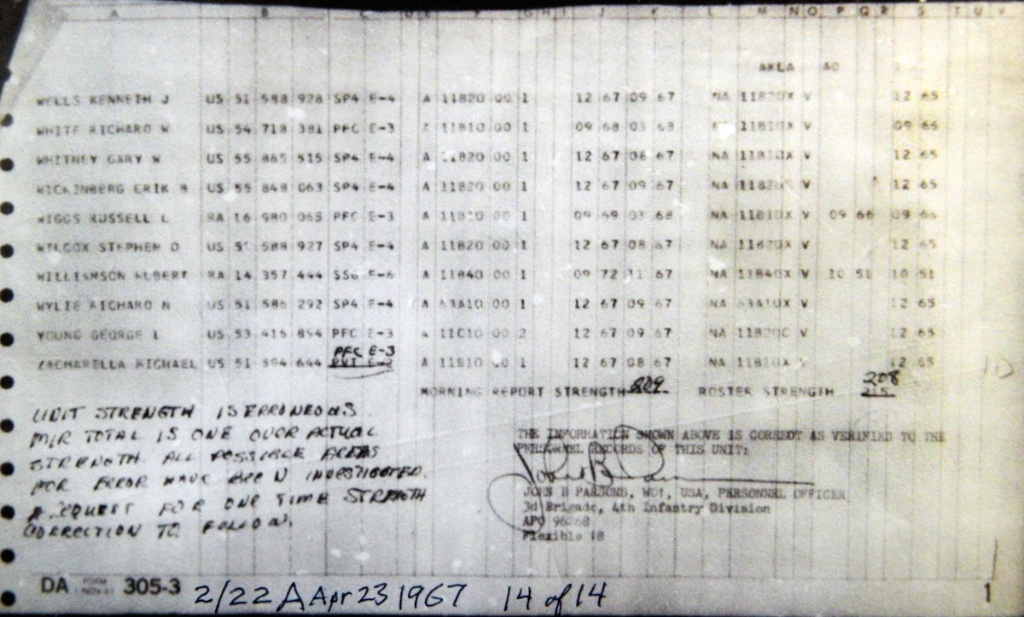 A B C D E F G H I J K L M N O P Q R S T U V
AKLA AO
WELLS KENNETH J US 51 588 928 SP4 E-4 A 11B20 00 1 12 67 09 67 NA 11B20X V 12 65
WHITE RICHARD W US 54 718 381 PFC E-3 A 11B10 00 1 09 68 05 68 11B10X V 09 66
WHITNEY GARY W US 55 865 515 SP4 E-4 A 11B20 00 1 12 67 06 67 NA 11B10X V 12 65
WICKINBERG ERIK B US 55 848 063 SP4 E-4 A 11B20 00 1 12 67 09 67 NA 11B20X V 12 65
WIGGS RUSSELL L RA 16 980 065 PFC E-3 A 11B10 00 1 09 69 03 68 NA 11B10X V 09 66 09 66
WILCOX STEPHEN D US 51 588 927 SP4 E-4 A 11B20 00 1 12 67 08 67 NA 11B20X V 12 65
WILLIAMSON HUBERT RA 14 357 444 SSG E-6 A 11B40 00 1 09 72 11 67 NA 11B40X V 10 51 10 51
WYLIE RICHARD N US 51 586 292 SP4 E-4 A 63A10 00 1 12 67 09 67 NA 63A10X V 12 65
YOUNG GEORGE L US 53 415 854 PFC E-3 A 11C10 00 2 12 67 09 67 NA 11B20C V 12 65
PFC E-3
ZACHARELLA MICHAEL US 51 594 644 A 11B10 00 1 12 67 08 67 NA 11B10X 12 65
MORNING REPORT STRENGTH 209 ROSTER STRENGTH 208
UNIT STRENGTH IS ERRONEOUS.
M/R TOTAL IS ONE OVER ACTUAL
STRENGTH. ALL POSSIBLE AREAS
FOR ERROR HAVE BEEN INVESTIGATED.
REQUEST FOR ONE TIME STRENGTH
CORRECTION TO FOLLOW.
THE INFORMATION SHOWN ABOVE IS CORRECT AS VERIFIED TO THE
PERSONNEL RECORDS OF THIS UNIT:
JOHN B PARSONS, WO1, USA, PERSONNEL OFFICER
3d Brigade, 4th Infantry Division
APO 96268
Flexible 18
DA FORM 305-3 2/22 A Apr 23 1967 14 of 14 1